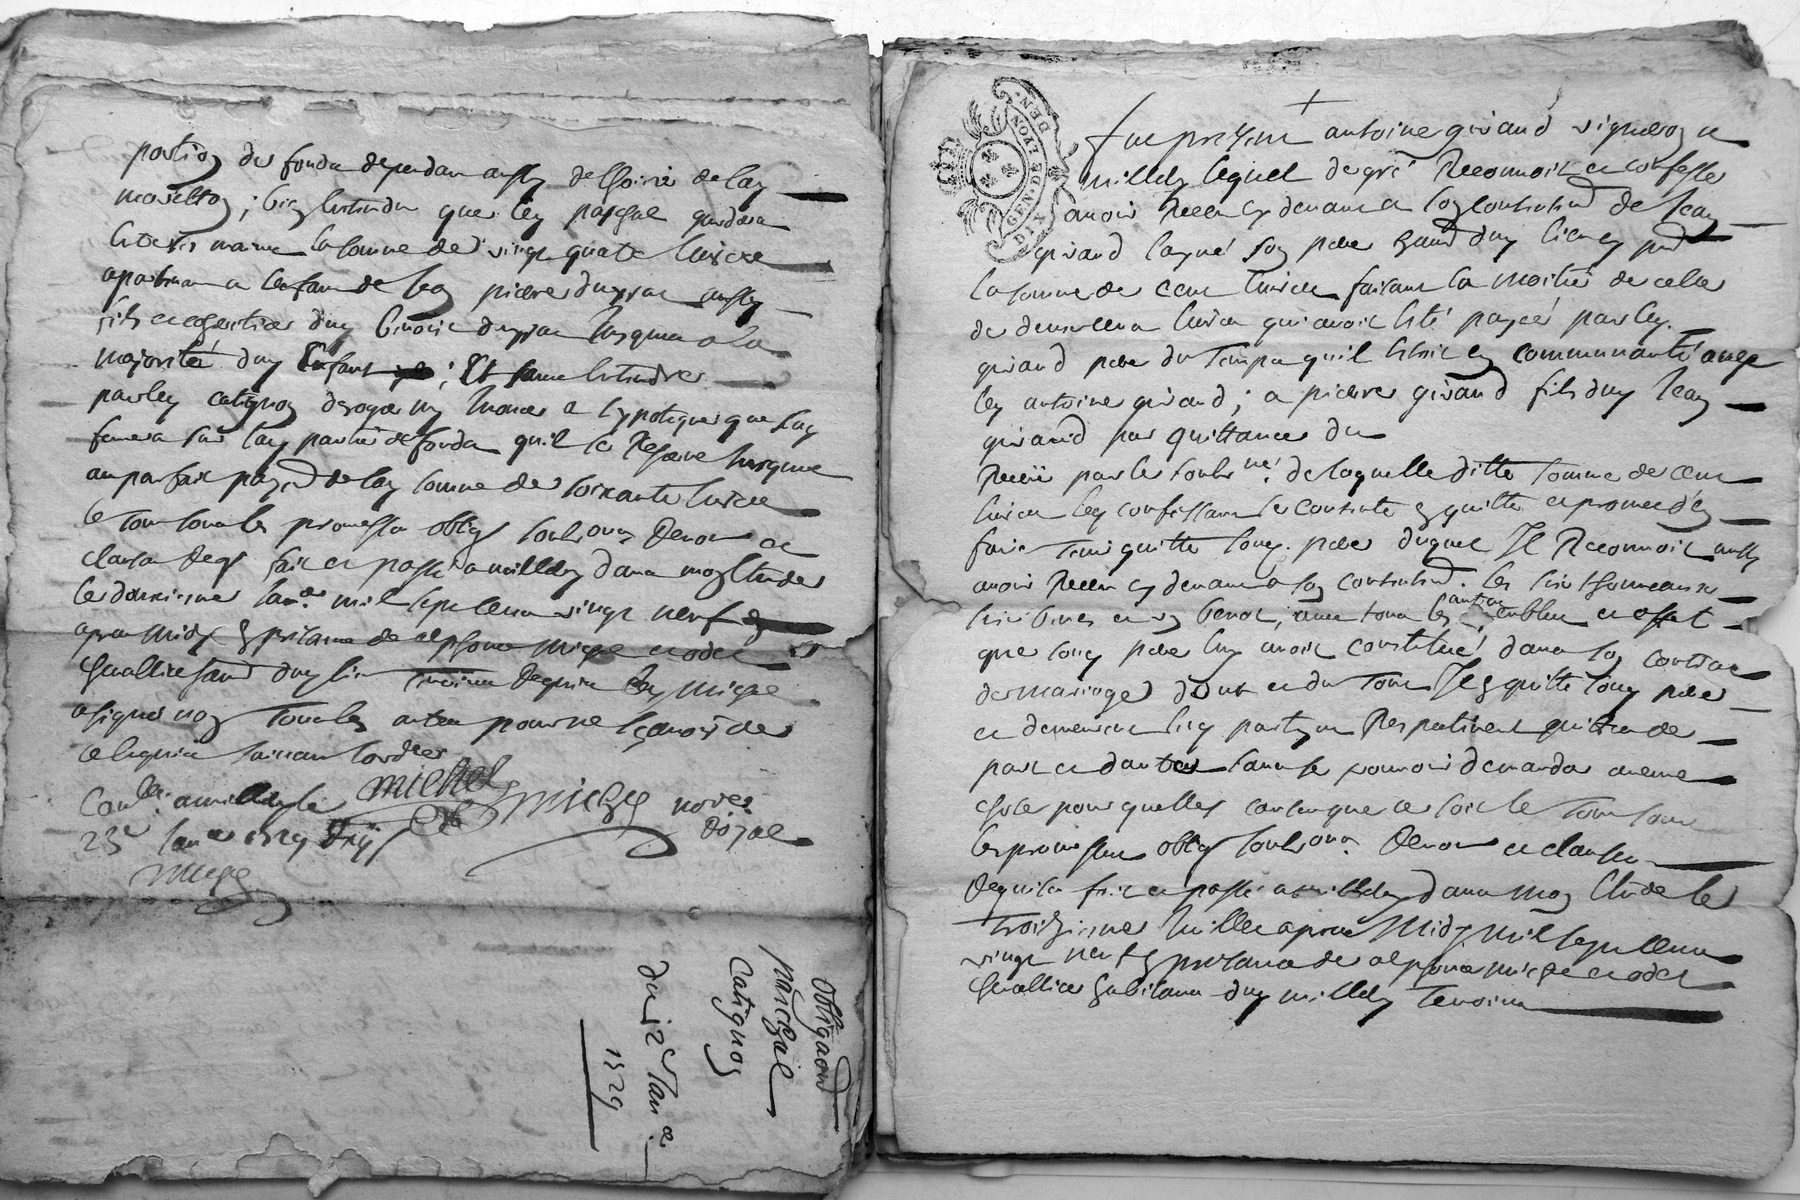 portion de fonds dependant aussy de l'hoirie de lad
; bien entendu que led paschal gardera
entre ses mains la somme de vingt quatre livres
apartenant a lenfant de feu pierre aussy
fils et heritier dud benoit jusques a la
majorité dud Enfant ; Et sans entendre
par led catignon deroger ny innover a lypoteque que luy
sur lad partie de fonds qu'il se Reserve jusques
au parfait payemt de lad somme de soixante livres
le tout sous les promesses oblig soubons Renon et
clauses Reqs fait et passé a millery dans mon etude
le douzieme janer mil sept cens vingt neuf
apres midy en presence de alphonse miege et odet
dud lieu temoins Requis led miege
a signé non tous les autres pour ne sçavoir de
ce Requis suivant lordre
Conllé a millery le
23e janer 1729
michel
miege nore
Royal
miege
Obligaon
paschal
catignon
du 12e Janer
1729
DIX DEN. GEN. DE LYON
+
Fut present antoine giraud vigneron a
millery lequel de gré Reconnoit et confesse
avoir Receu cy devant a son contentemt de Jean
giraud layné son pere habt dud lieu cy pnt
la somme de cent livres faisant la moitié de celle
de deux cens livres qui avoit eté payeé par led
giraud pere du temps quil etoit en communauté avec
led antoine giraud ; a pierre giraud fils dud Jean
giraud par quittance du
Receüe par le soubsné. de laquelle ditte somme de cent
livres led confessant se contente en quitte et promet d'en
faire tenir quitte sond. pere duquel Il Reconnoit aussy
avoir Receu cy devant a son contentemt. les
, avec tous les autres meubles et effet
que sond pere luy avoit constitué dans son contrat
de mariage dont et du tout Il en quitte sond pere
et demeurent lesd parties Respectivemt quittes de
part et dautre sans se pouvoir demander aucune
chose pour quelle cause que ce soit le tout sous
les promesses oblig soubons Renon et clauses
Requises fait et passé a millery dans mon Etude le
troizieme Juillet apres Midy mil sept cens
vingt neuf en presence de alphonse miege et odet
habitans dud millery temoins